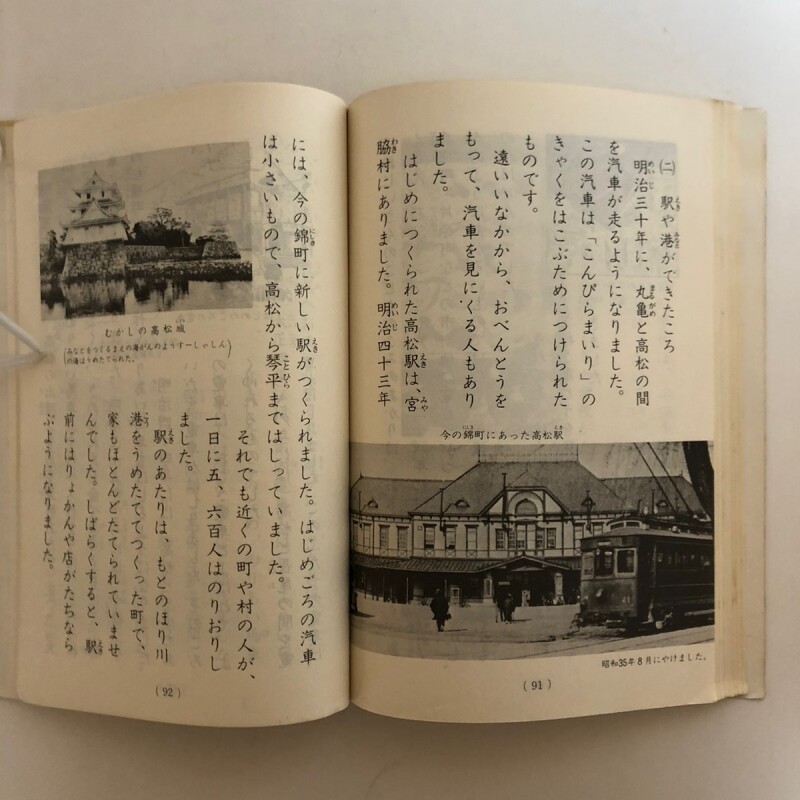 ㈡ 駅や港ができたころ
明治三十年に、丸亀と高松の間
を汽車が走るようになりました。
この汽車は「こんぴらまいり」の
きゃくをはこぶためにつけられた
ものです。
遠いいなかから、おべんとうを
もって、汽車を見にくる人もあり
ました。
はじめにつくられた高松駅は、宮
脇村にありました。明治四十三年
今の錦町にあった高松駅
昭和35年8月にやけました。
(91)
には、今の錦町に新しい駅がつくられました。はじめごろの汽車
は小さいもので、高松から琴平まではしっていました。
それでも近くの町や村の人が、
一日に五、六百人はのりおりし
ました。
駅のあたりは、もとのほり川
港をうめたててつくった町で、
家もほとんどたてられていませ
んでした。しばらくすると、駅
前にはりょかんや店がたちなら
ぶようになりました。
むかしの高松城
(みなとをつくるまえの海がんのようす―しゃしん
の海はうめたてられた。)
(92)